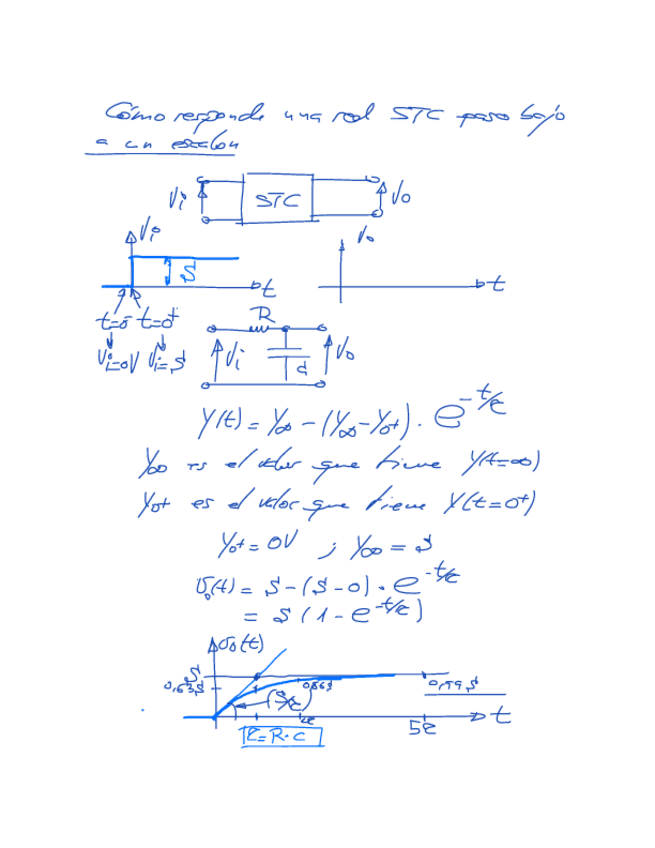 Cómo responde una red STC paso bajo
a un escalón
Vi STC Vo
Vi
S
t
Vo
t
t=0⁻ t=0⁺
Vi=0V Vi=S
R
Vi C Vo
Y(t) = Y∞ - (Y∞ - Y0+) · e^-t/τ
Y∞ es el valor que tiene Y(t=∞)
Y0+ es el valor que tiene Y(t=0⁺)
Y0+ = 0V ; Y∞ = S
υo(t) = S - (S - 0) · e^-t/τ
= S (1 - e^-t/τ)
υo(t)
S
0,63S
(S/τ)
0,86S
0,99S
2τ
5τ
t
τ = R·C